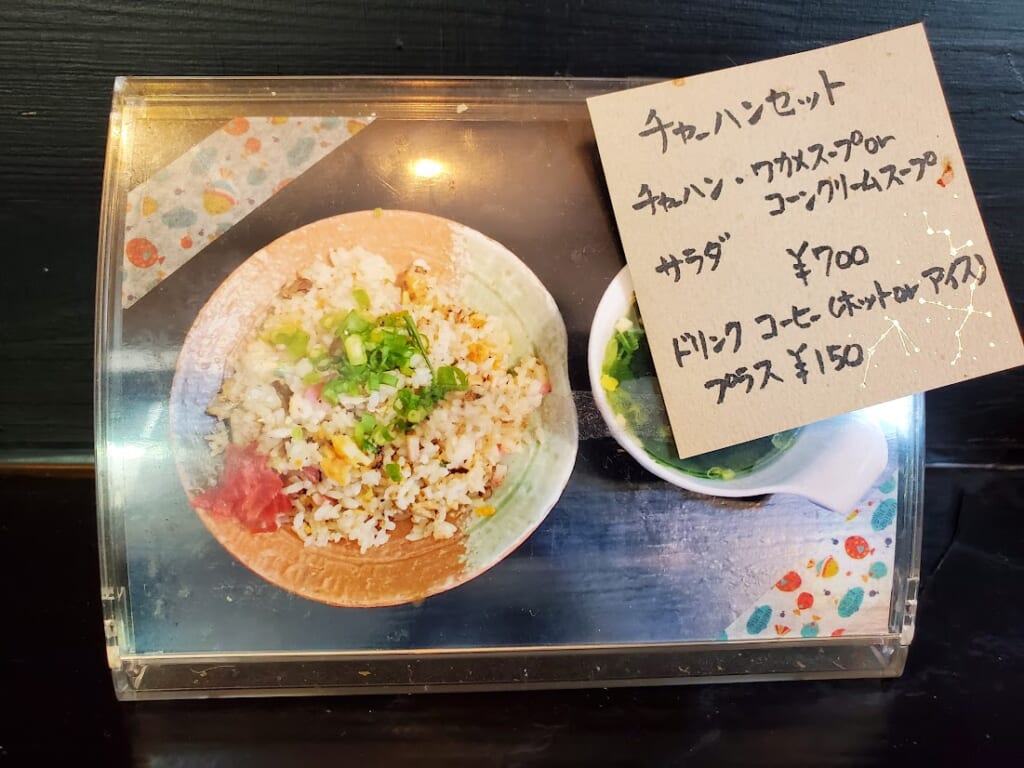 チャーハンセット
チャーハン・ワカメスープor
コーンクリームスープ
サラダ ¥700
ドリンク コーヒー(ホットor アイス)
プラス ¥150